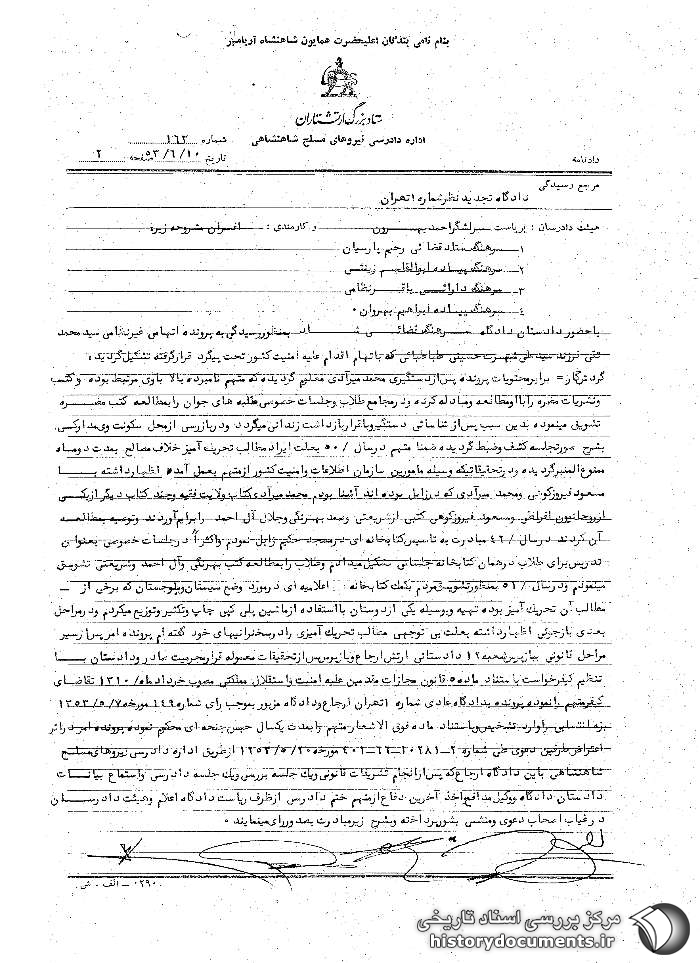 بنام نامی بندگان اعلیحضرت همایون شاهنشاه آریامهر
ستاد بزرگ ارتشتاران
اداره دادرسی نیروهای مسلح شاهنشاهی
شماره ۱۶۲
دادنامه
تاریخ ۵۳/۶/۱۰ صفحه ۲
مرجع رسیدگی
دادگاه تجدید نظر شماره ۱ تهران
هیئت دادرسان : بریاست سرلشگر احمد بهرون و کارمندی : افسران مشروحه زیر:
۱ــ سرهنگ ستاد قضائی رحیم پارسیان
۲ــ سرهنگ پیاده ابوالقاسم زینتی
۳ــ سرهنگ دارائی باقر نظامی
۴ــ سرهنگ پیاده ابراهیم بهروان ۰
با حضور دادستان دادگاه سرهنگ قضائی بمنظور رسیدگی به پرونده اتهامی غیرنظامی سید محمد
تقی فرزند سید علی شهرت حسینی طباطبائی که باتهام اقدام علیه امنیت کشور تحت پیگرد قرار گرفته تشکیل گردید :
گردشکار= برابر محتویات پرونده پس از دستگیری محمد میرآدی معلوم گردیده که متهم نامبرده بالا باوی مرتبط بوده و کتب
و نشریات مضره را با او مطالعه و مبادله کرده و در مجامع طلاب و جلسات خصوصی طلبه های جوان را بمطالعه کتب مضره
تشویق مینموده بدین سبب پس از شناسائی دستگیر و با قرار بازداشت زندانی میگردد و در بازرسی از محل سکونت وی مدارکی
بشرح صورتجلسه کشف و ضبط گردیده ضمنا متهم در سال /۵۰ بعلت ایراد مطالب تحریک آمیز خلاف مصالح بمدت دو ماه
ممنوع المنبر گردیده و در تحقیقاتیکه وسیله مامورین سازمان اطلاعات و امنیت کشور از متهم بعمل آمده اظهار داشته با
مسعود فیروزکوهی و محمد میرآدی که در زابل بوده اند آشنا بودم محمد میرآدی کتاب ولایت فقیه و چند کتاب دیگر از یکی
از روحانیون افراطی و مسعود فیروزکوهی کتبی از شریعتی و صمد بهرنگی و جلال آل احمد را برایم آوردند و توصیه بمطالعه
آن کردند در سال /۴۲ مبادرت به تاسیس کتابخانه ای در مسجد حکیم زابل نمودم و اکثراً در جلسات خصوصی بعنوان
تدریس برای طلاب در همان کتابخانه جلساتی تشکیل میدادم و طلاب را بمطالعه کتب بهرنگی و آل احمد و شریعتی تشویق
مینمودم و در سال /۵۱ بمنظور تشویق مردم بکمک کتابخانه اعلامیه ای در مورد وضع سیستان و بلوچستان که برخی از
مطالب آن تحریک آمیز بوده تهیه و بوسیله یکی از دوستان با استفاده از ماشین پلی کپی چاپ و تکثیر و توزیع میکردم و در مراحل
بعدی بازجوئی اظهار داشته بعلت بی توجهی مطالب تحریک آمیزی را در سخنرانیهای خود گفته ام پرونده امر پس از سیر
مراحل قانونی ببازپرس شعبه ۱۲ دادستانی ارتش ارجاع و بازپرس پس از تحقیقات معموله قرار مجرمیت صادر و دادستان با
تنظیم کیفرخواست با استناد ماده ۵ قانون مجازات مقدمین علیه امنیت و استقلال مملکتی مصوب خرداد ماه /۱۳۱۰ تقاضای
کیفر متهم را نموده پرونده بدادگاه عادی شماره ۱ تهران ارجاع و دادگاه مزبور بموجب رای شماره ۱۴۹ مورخه ۱۳۵۳/۵/۷
بزه انتسابی را وارد تشخیص و با استناد ماده فوق الاشعار متهم را بمدت یکسال حبس جنحه ای محکوم نموده پرونده امر در اثر
اعتراض طرفین دعوی طی شماره ۲ــ۲۰۲۸۱ــ۲۲ــ۴۰۲ مورخه ۱۳۵۳/۵/۲۰ از طریق اداره دادرسی نیروهای مسلح
شاهنشاهی باین دادگاه ارجاع که پس از انجام تشریفات قانونی و یک جلسه بررسی و یک جلسه دادرسی و استماع بیانات
دادستان دادگاه و وکیل مدافع و اخذ آخرین دفاع از متهم ختم دادرسی از طرف ریاست دادگاه اعلام و هیئت دادرسان
در غیاب اصحاب دعوی و منشی بشور پرداخته و بشرح زیر مبادرت بصدور رای مینمایند ۰
۰۲۹۰ــ الف ۰ ش
مرکز بررسی اسناد تاریخی
historydocuments.ir